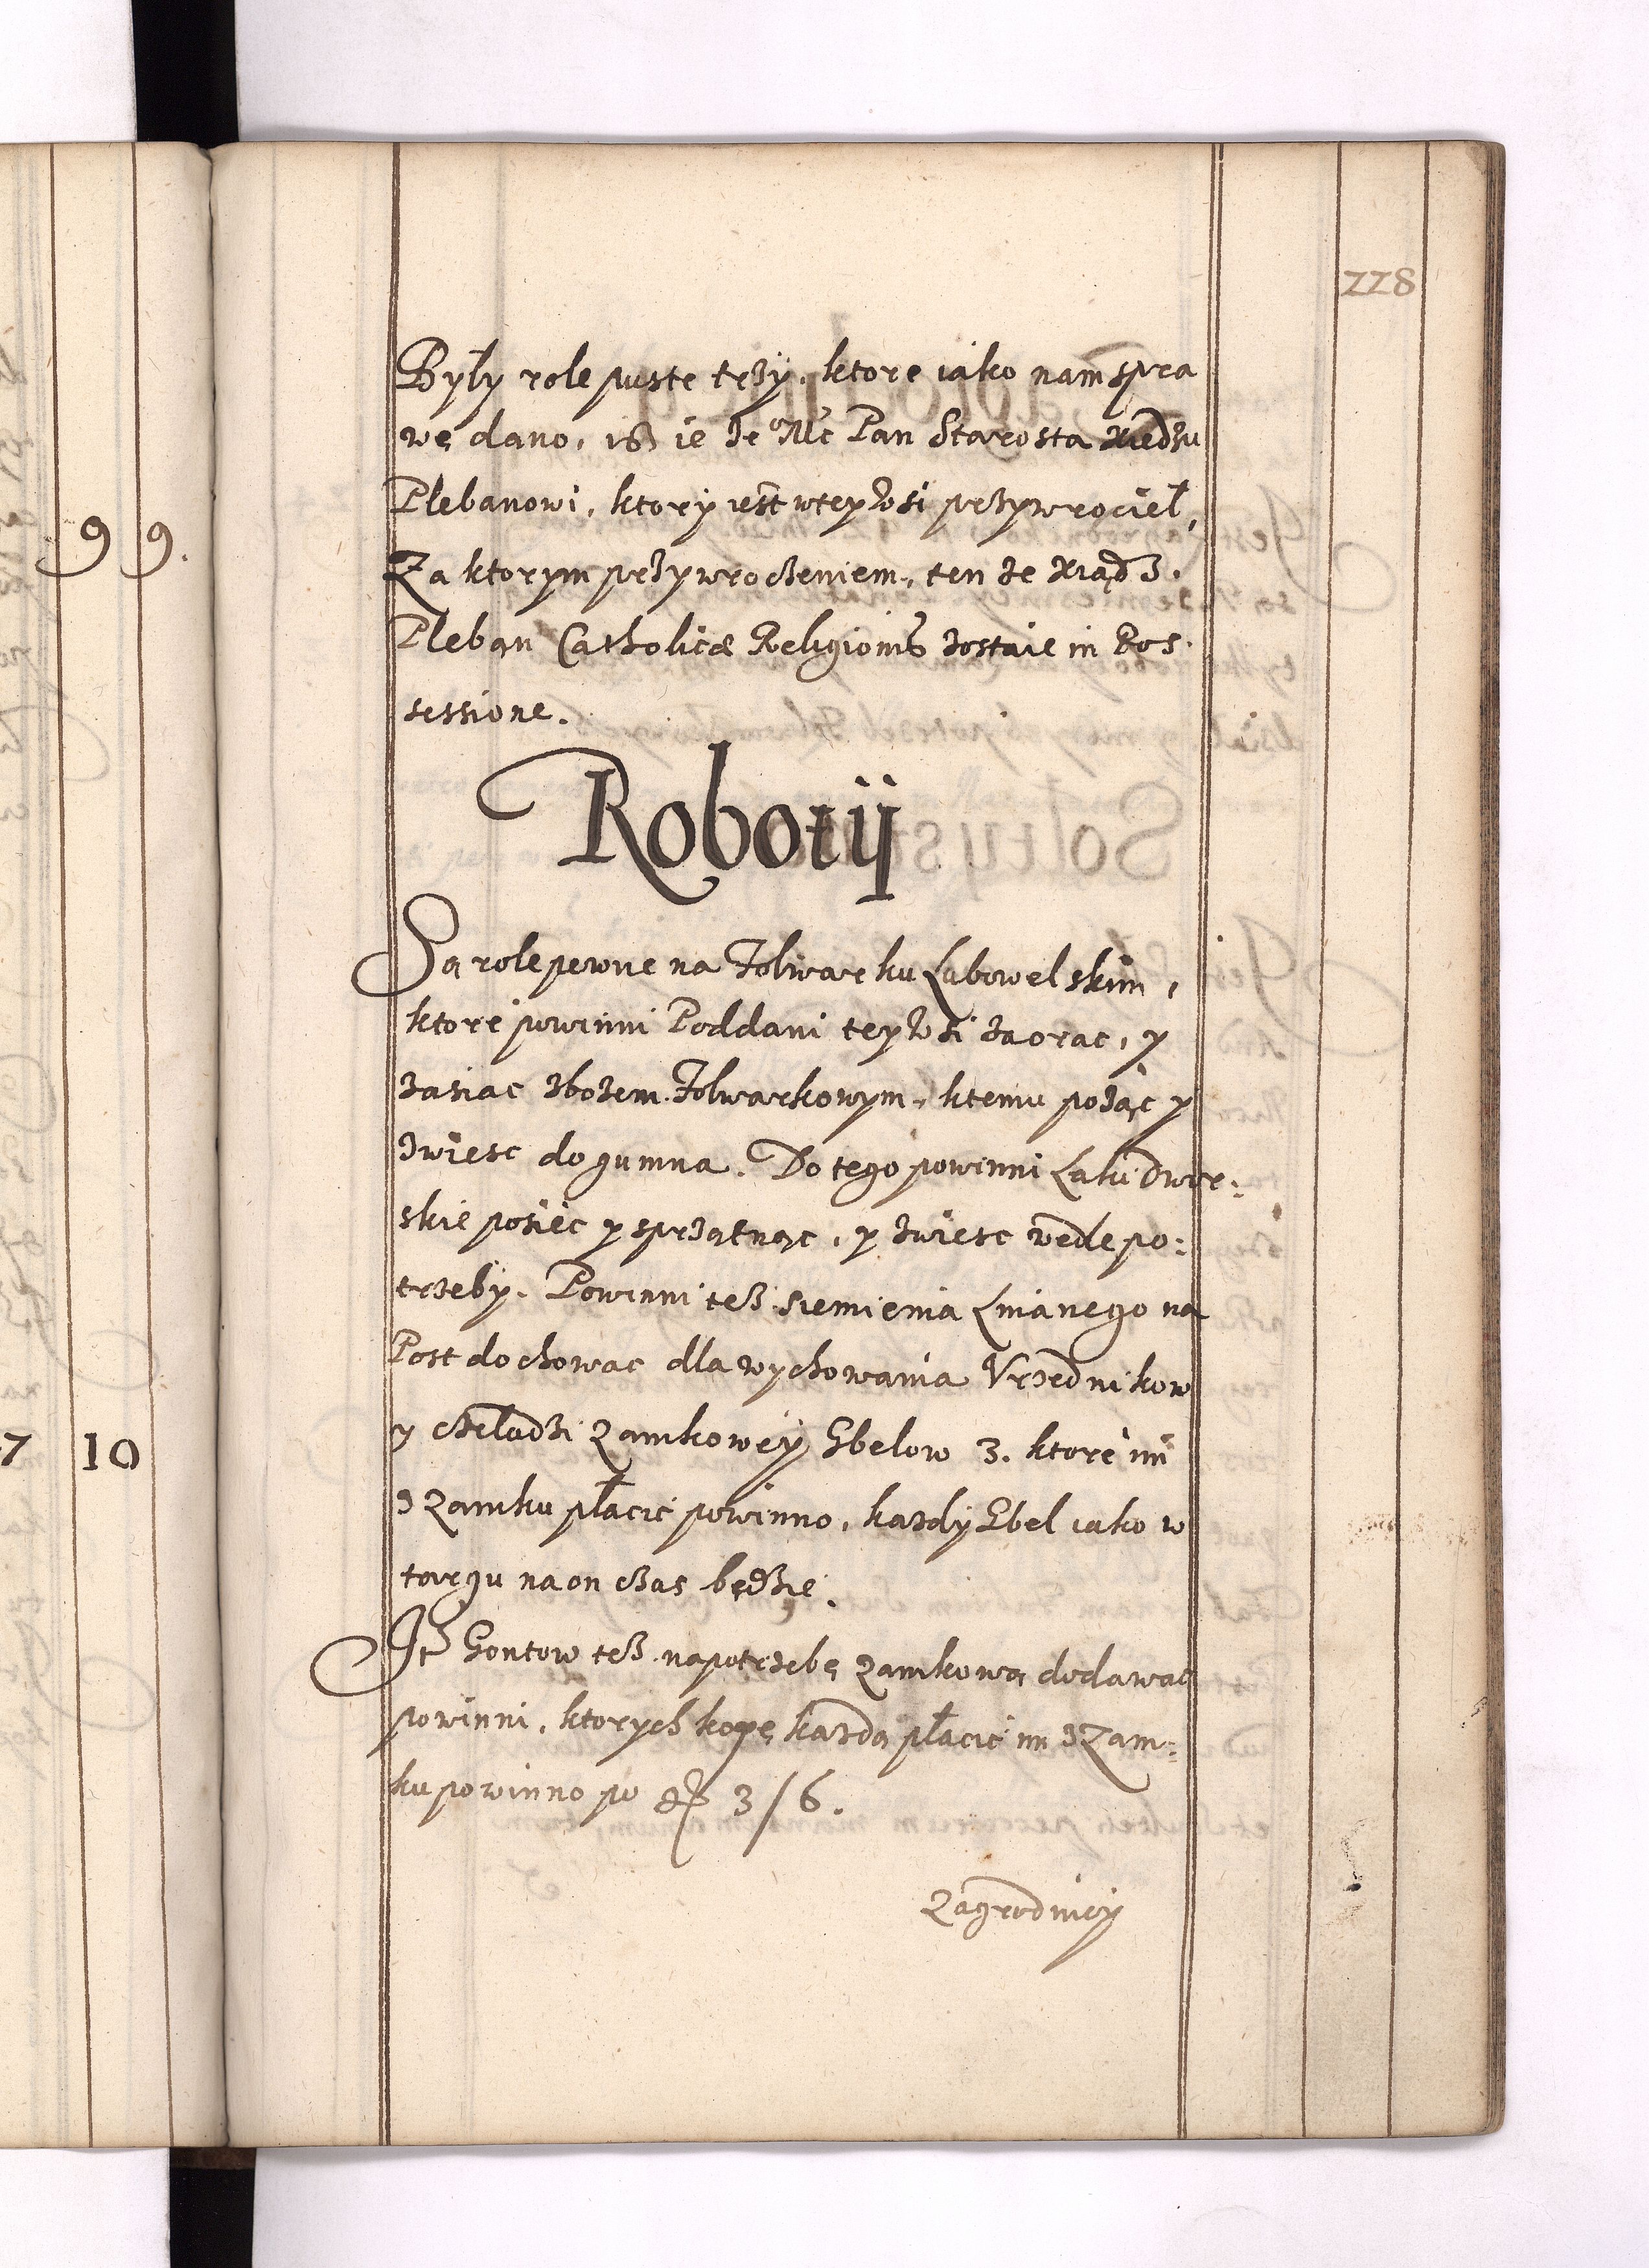 228
Były role puste trzÿ, ktore iako nam spra
wę dano, iß ie Je Mc Pan Starosta Xiędzu
Plebanowi, ktory iest w tey wsi przywrociel,
Za ktorym przywroczeniem, ten ze Xiądz.
Pleban Catholicæ Religionis zostaie in Pos
sessione.
Robotÿ
Są role pewne na Folwarku Lubowelskim,
ktore powinni Poddani tey wsi zaorac, y
zasiac zbozem Folwarkowym, ktemu pożąc y
zwiesc do gumna. Do tego powinni Łaki Dwor:
skie posiec y sprzatnąc, y zwiesc wedle po:
trzebÿ. Powinni teß siemienia Lnianego na
Post dochowac dla wychowania Vrzednikow
y cheladzi Zamkowey Gbelow 3. ktore im
z Zamku płacic powinno, kazdy Gbel iako w
targu na on czas będzie.
It Gontow teß na potrzebę zamkową dodawac
powinni, ktorych kopę kazdą płacic im z Zam:
ku powinno po gr 3/6.
Zagrodnicy
9 9.
7 10